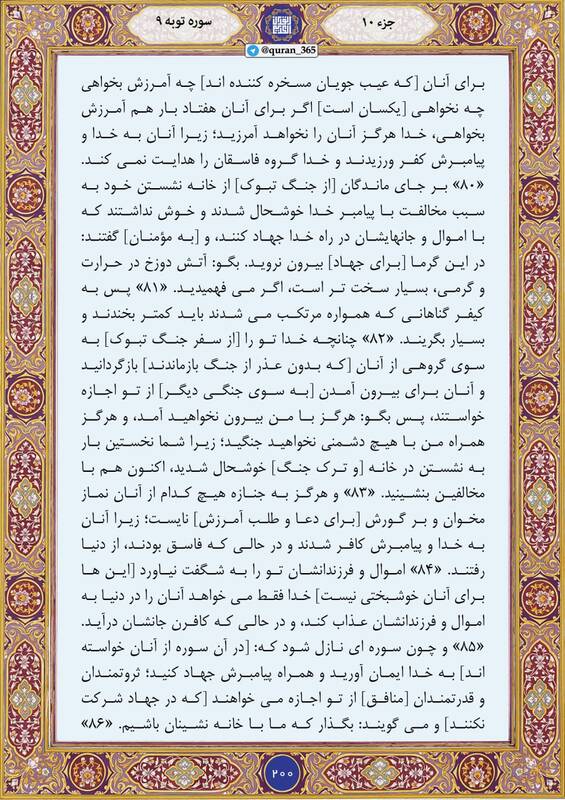 جزء ۱۰
سوره توبه ۹
@quran_365
برای آنان [که عیب جویان مسخره کننده اند] چه آمرزش بخواهی
چه نخواهی [یکسان است] اگر برای آنان هفتاد بار هم آمرزش
بخواهی، خدا هرگز آنان را نخواهد آمرزید؛ زیرا آنان به خدا و
پیامبرش کفر ورزیدند و خدا گروه فاسقان را هدایت نمی کند.
«۸۰» بر جای ماندگان [از جنگ تبوک] از خانه نشستن خود به
سبب مخالفت با پیامبر خدا خوشحال شدند و خوش نداشتند که
با اموال و جانهایشان در راه خدا جهاد کنند، و [به مؤمنان] گفتند:
در این گرما [برای جهاد] بیرون نروید. بگو: آتش دوزخ در حرارت
و گرمی، بسیار سخت تر است، اگر می فهمیدید. «۸۱» پس به
کیفر گناهانی که همواره مرتکب می شدند باید کمتر بخندند و
بسیار بگریند. «۸۲» چنانچه خدا تو را [از سفر جنگ تبوک] به
سوی گروهی از آنان [که بدون عذر از جنگ بازماندند] بازگردانید
و آنان برای بیرون آمدن [به سوی جنگی دیگر] از تو اجازه
خواستند، پس بگو: هرگز با من بیرون نخواهید آمد، و هرگز
همراه من با هیچ دشمنی نخواهید جنگید؛ زیرا شما نخستین بار
به نشستن در خانه [و ترک جنگ] خوشحال شدید، اکنون هم با
مخالفین بنشینید. «۸۳» و هرگز به جنازه هیچ کدام از آنان نماز
مخوان و بر گورش [برای دعا و طلب آمرزش] نایست؛ زیرا آنان
به خدا و پیامبرش کافر شدند و در حالی که فاسق بودند، از دنیا
رفتند. «۸۴» اموال و فرزندانشان تو را به شگفت نیاورد [این ها
برای آنان خوشبختی نیست] خدا فقط می خواهد آنان را در دنیا به
اموال و فرزندانشان عذاب کند، و در حالی که کافرن جانشان درآید.
«۸۵» و چون سوره ای نازل شود که: [در آن سوره از آنان خواسته
اند] به خدا ایمان آورید و همراه پیامبرش جهاد کنید؛ ثروتمندان
و قدرتمندان [منافق] از تو اجازه می خواهند [که در جهاد شرکت
نکنند] و می گویند: بگذار که ما با خانه نشینان باشیم. «۸۶»
۲۰۰